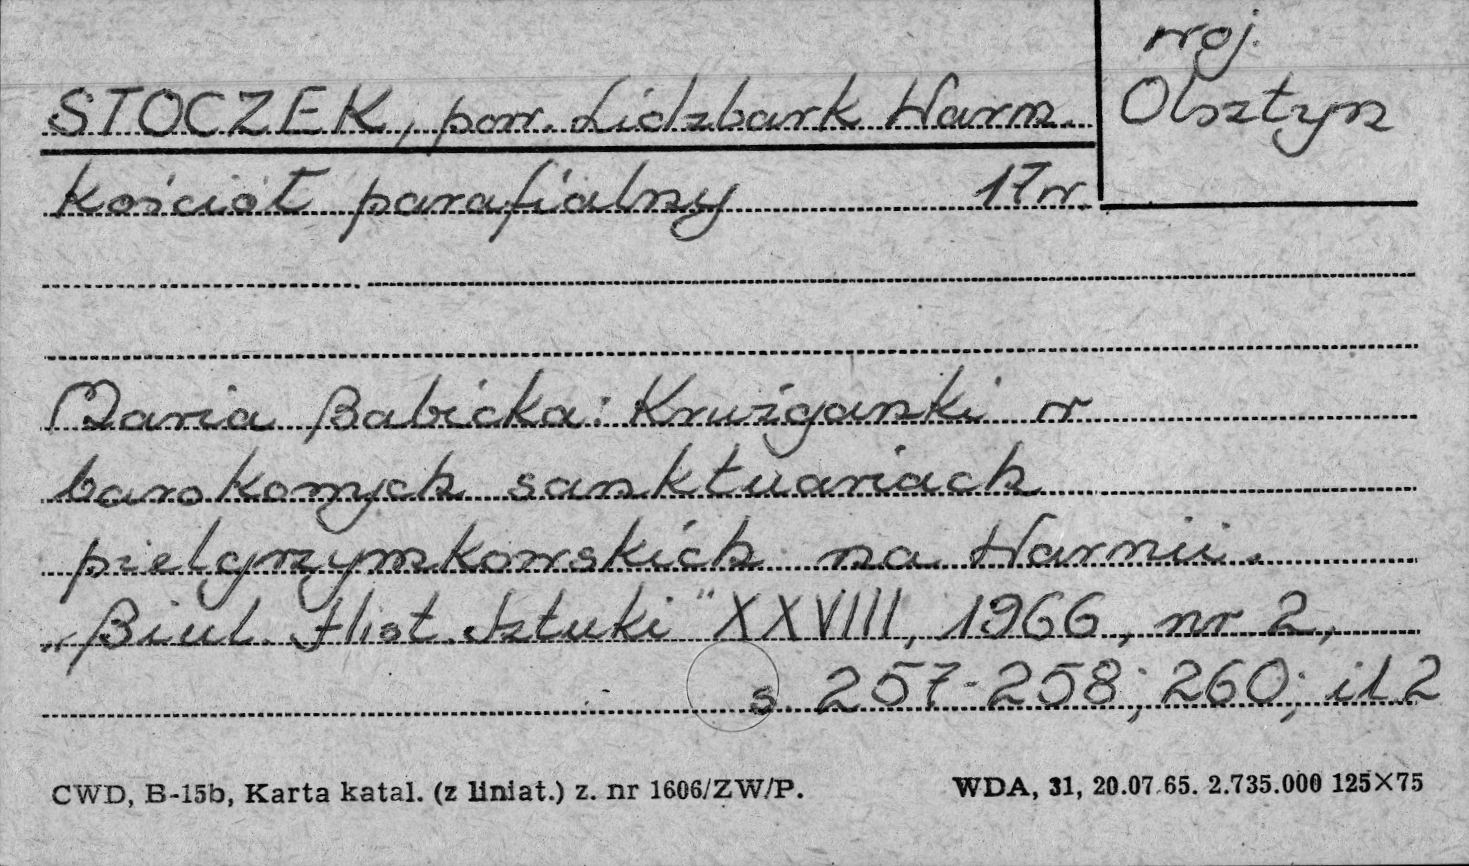 woj.
Olsztyn
STOCZEK, pow. Lidzbark Warm.
kościół parafialny 17 w.
Maria Babicka: Krużganki w
barokowych sanktuariach
pielgrzymkowskich na Warmii.
„Biul. Hist. Sztuki" XXVIII, 1966, nr 2,
s. 257-258; 260; il. 2
CWD, B-15b, Karta katal. (z liniat.) z. nr 1606/ZW/P. WDA, 31, 20.07.65. 2.735.000 125×75